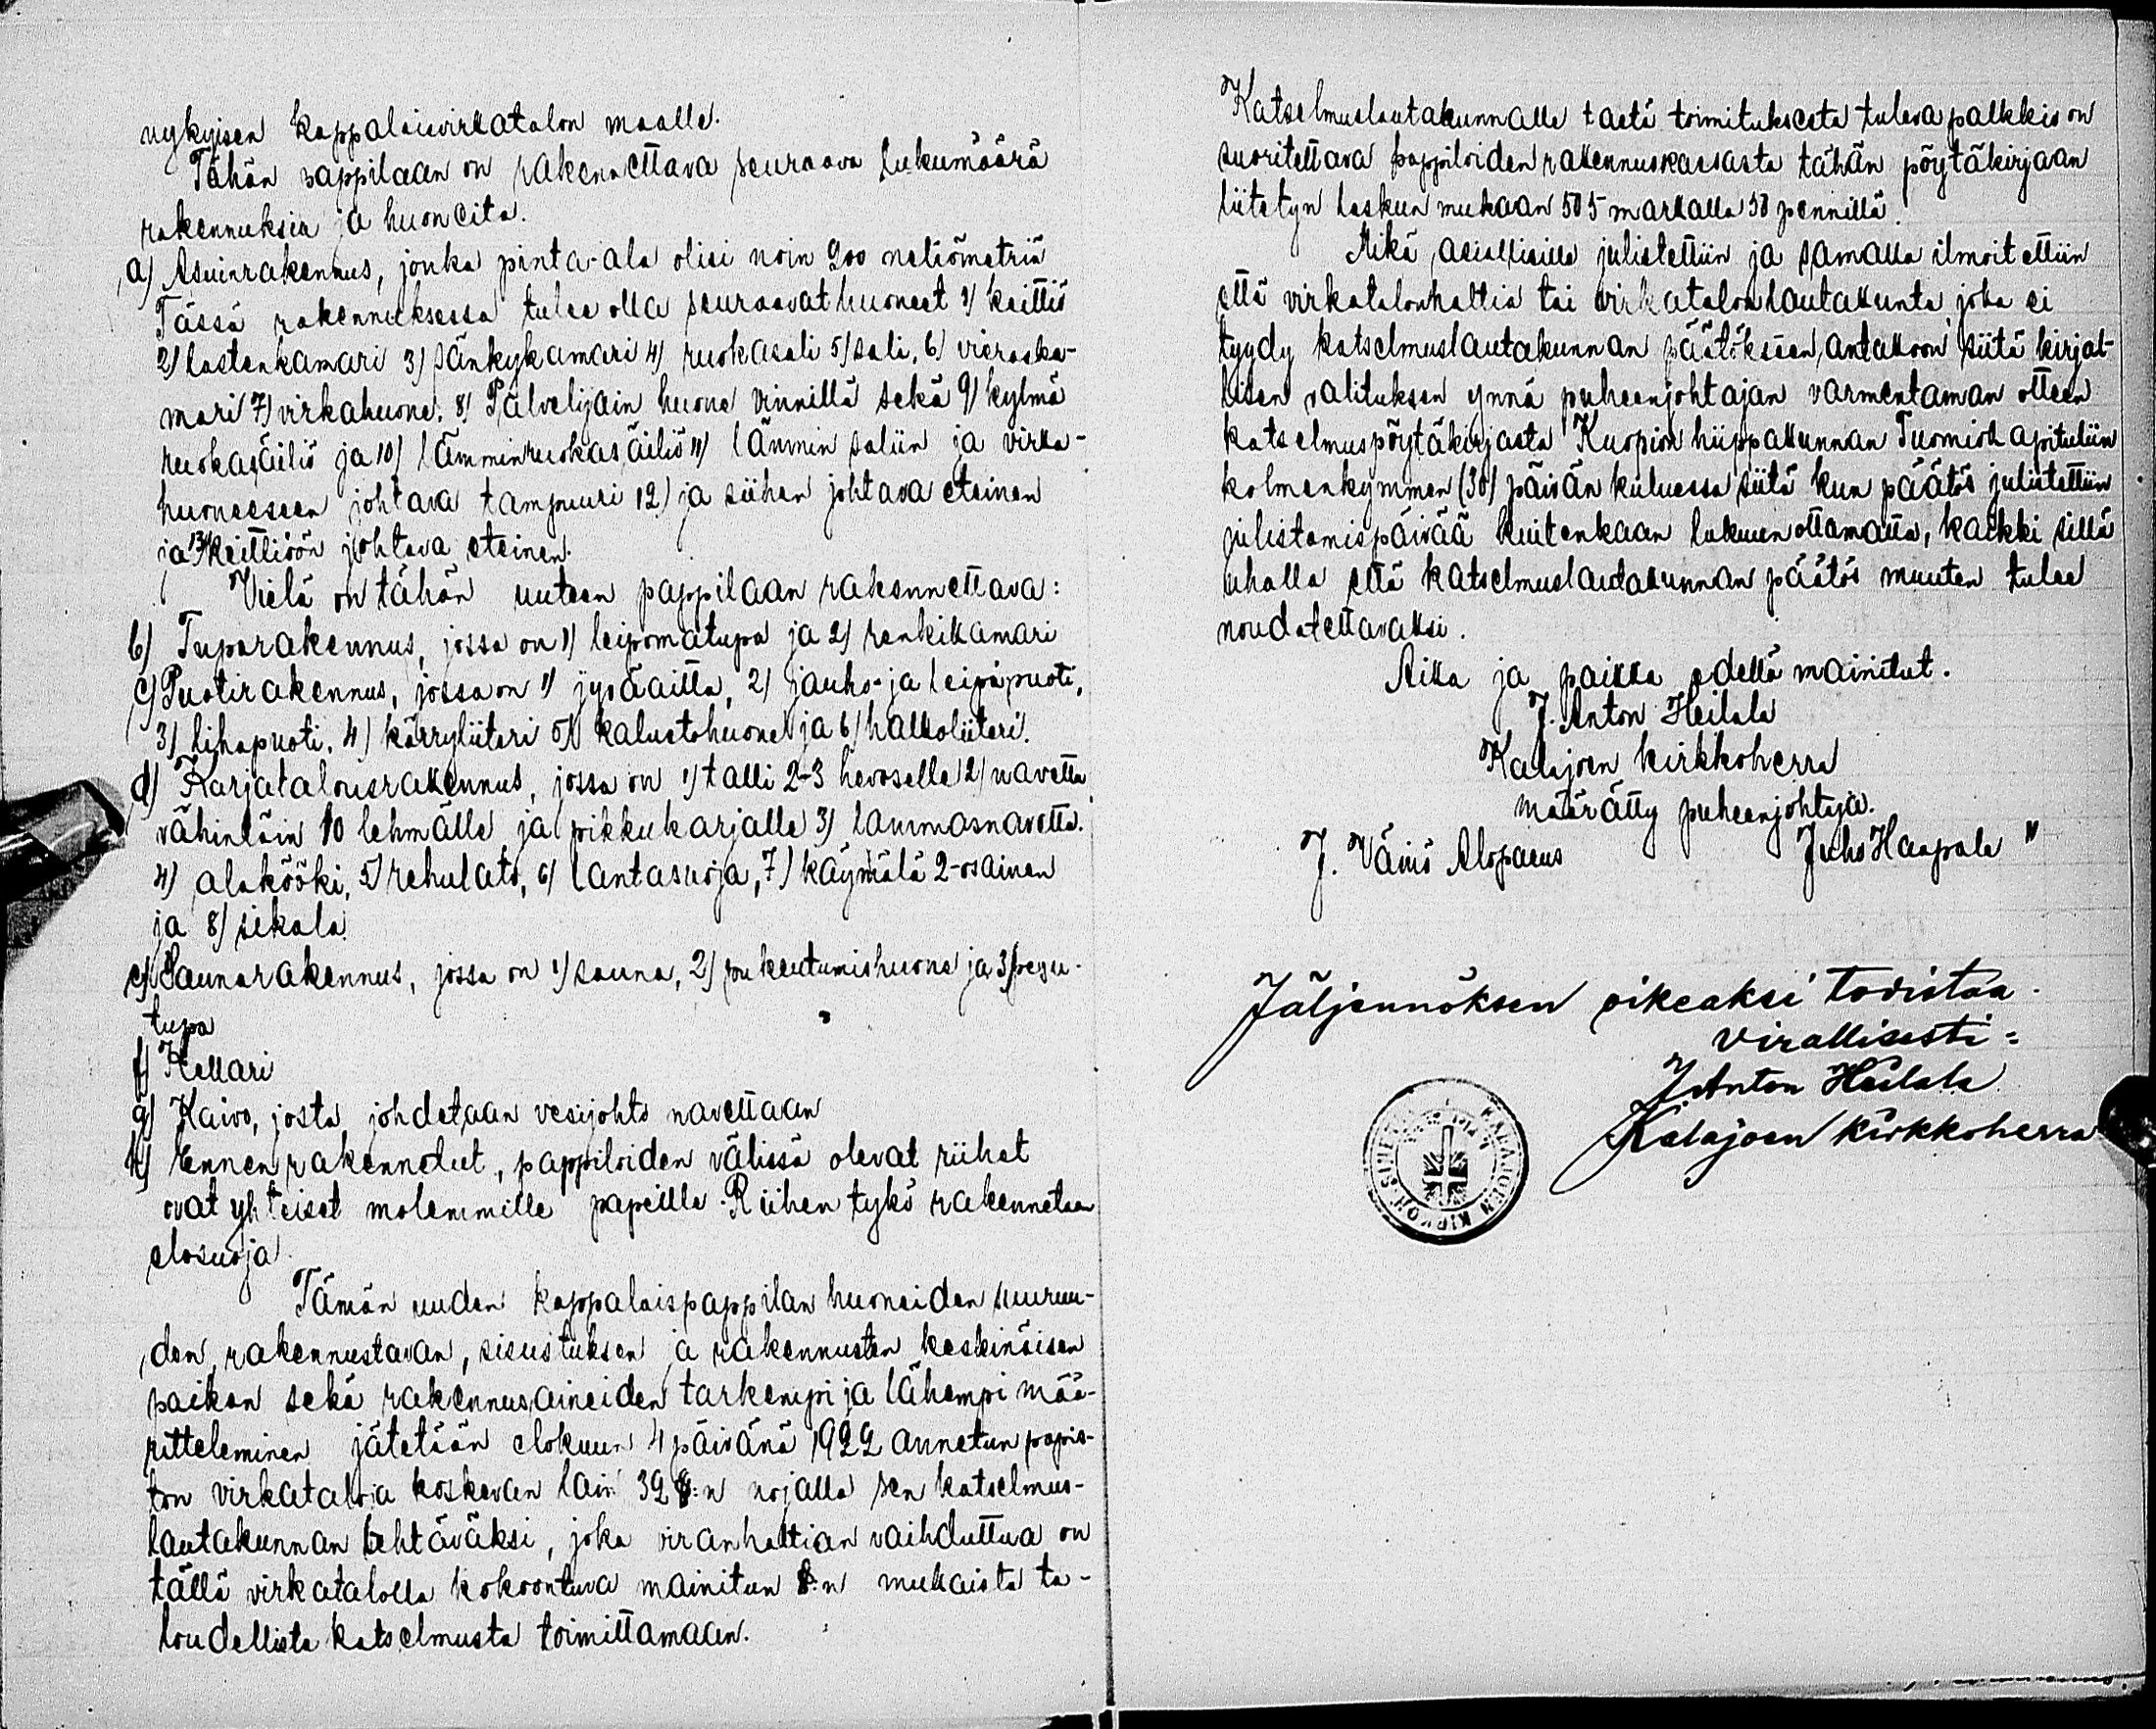 nykyisen kappalaisvirkatalon maalle.
Tähän pappilaan on rakennettava seuraava lukumäärä
rakennuksia ja huoneita.
a) Asuinrakennus, jonka pinta-ala olisi noin 200 neliömetriä
Tässä rakennuksessa tulee olla seuraavat huoneet 1) keittiö
2) lastenkamari 3) sänkykamari 4) ruokasali 5) sali, 6) vieraska-
mari 7) virkahuone, 8) Palvelijain huone vinnillä sekä 9) kylmä
ruokasäiliö ja 10) lämminruokasäiliö 11) lämmin saliin ja virka-
huoneeseen johtava tampuuri 12) ja siihen johtava eteinen
ja 13) keittiöön johtava eteinen.
Vielä on tähän uuteen pappilaan rakennettava:
b) Tuparakennus, jossa on 1) leipomatupa ja 2) renkikamari
c) Puotirakennus, jossa on 1) jyväaitta, 2) jauho- ja leipäpuoti,
3) lihapuoti, 4) kärryliiteri 5) kalustohuone ja 6) halkoliiteri.
d) Karjatalousrakennus, jossa on 1) talli 2-3 hevoselle 2) navetta
vähintäin 10 lehmälle ja pikkukarjalle 3) lammasnavetta.
4) alakööki, 5) rehulato, 6) lantasuoja, 7) käymälä 2-osainen
ja 8) sikala
e) Saunarakennus, jossa on 1) sauna, 2) pukeutumishuone ja 3) pesu-
tupa
f) Kellari
g) Kaivo, josta johdetaan vesijohto navettaan
h) Ennen rakennetut, pappiloiden välissä olevat riihet
ovat yhteiset molemmille papeille. Riihen tykö rakennetaan
elosuoja.
Tämän uuden kappalaispappilan huoneiden suuruu-
den, rakennustavan, sisustuksen ja rakennusten keskinäisen
paikan sekä rakennusaineiden tarkempi ja lähempi mää-
ritteleminen jätetään elokuun 4 päivänä 1922 annetun papis-
ton virkataloja koskevan lain 39 §:n nojalla sen katselmus-
lautakunnan tehtäväksi, joka viranhaltian vaihduttua on
tällä virkatalolla kokoontuva mainitun §:n mukaista ta-
loudellista katselmusta toimittamaan.
Katselmuslautakunnalle tästä toimituksesta tuleva palkkio on
suoritettava pappiloiden rakennuskassasta tähän pöytäkirjaan
liitetyn laskun mukaan 505 markalla 50 pennillä.
Mikä asiallisille julistettiin ja samalla ilmoitettiin
että virkatalonhaltia tai virkatalonlautakunta, joka ei
tyydy katselmuslautakunnan päätökseen, antakoon siitä kirjal-
lisen valituksen ynnä puheenjohtajan varmentaman otteen
katselmuspöytäkirjasta Kuopion hiippakunnan Tuomiokapituliin
kolmenkymmen (30) päivän kuluessa siitä kun päätös julistettiin
julistamispäivää kuitenkaan lukuun ottamatta, kaikki sillä
uhalla että katselmuslautakunnan päätös muuten tulee
noudatettavaksi.
Aika ja paikka edellä mainitut.
J. Anton Heilala
Kalajoen kirkkoherra
määrätty puheenjohtaja.
J. Väinö Alopaeus Juho Haapala "
Jäljennöksen oikeaksi todistaa
virallisesti:
J Anton Heilala
Kalajoen kirkkoherra